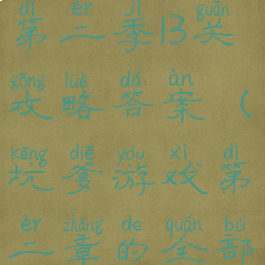 dì èr jì guān
第二季13关
gōng lüè dá àn
攻略答案（
kēng diē yóu xì dì
坑爹游戏第
èr zhāng de quán bù
二章的全部